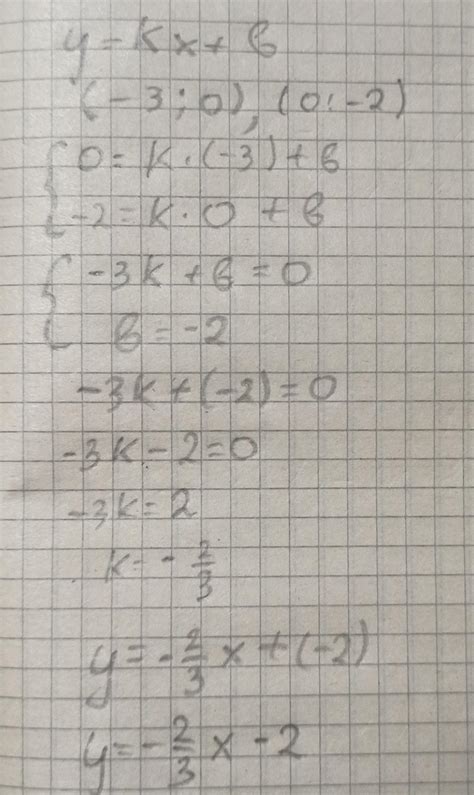 y = kx + b
(-3; 0), (0; -2)
{ 0 = k · (-3) + b
-2 = k · 0 + b
{ -3k + b = 0
b = -2
-3k + (-2) = 0
-3k - 2 = 0
-3k = 2
k = - 2/3
y = - 2/3 x + (-2)
y = - 2/3 x - 2